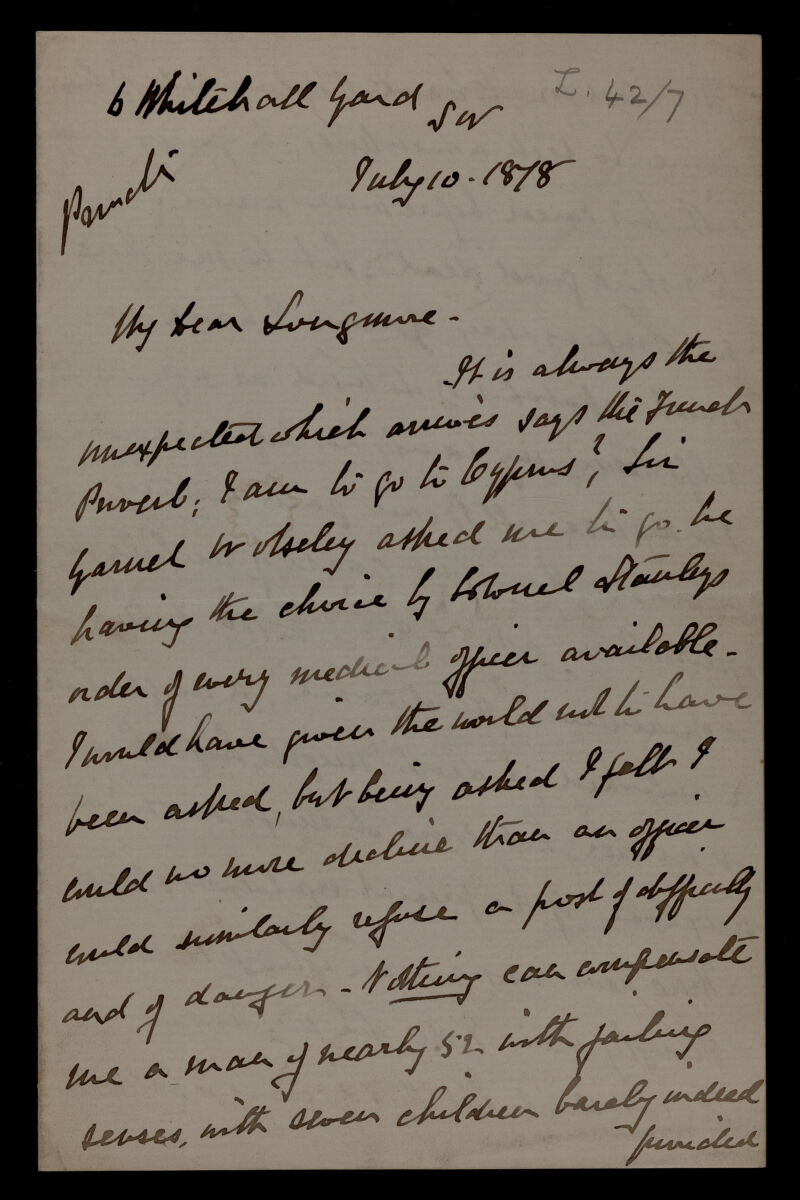 6 Whitehall Yard
L. 42/7
SW
July 10. 1878
Private
My Dear Longmore.
It is always the
unexpected which arrives says the French
Proverb; I am to go to Cyprus!, Sir
Garnet Wolseley asked me to go. he
having the choice by Colonel Stanleys
order of every medical officer available.
I would have given the world not to have
been asked, but being asked I felt I
could no more decline than an officer
could similarly refuse a post of difficulty
and of danger. Nothing can compensate
me a man of nearly 52 with failing
senses, with seven children barely indeed
provided